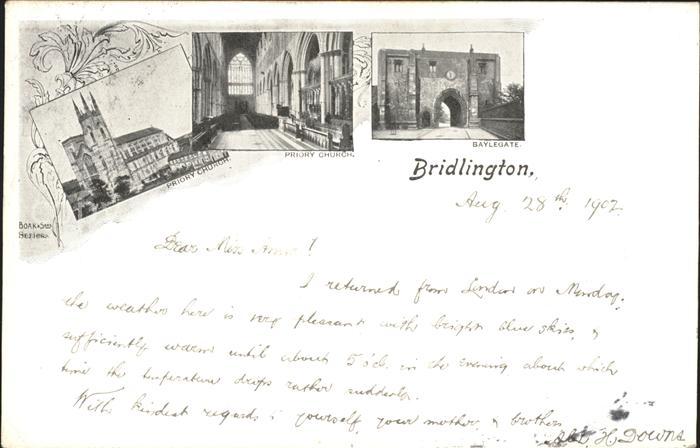 PRIORY CHURCH.
PRIORY CHURCH.
BAYLEGATE.
BOAK & SONS
Bridlington,
Aug. 28th, 1902
Dear Miss Annie!
I returned from London on Monday.
the weather here is very pleasant with bright blue skies, &
sufficiently warm until about 5 o'c. in the evening about which
time the temperature drops rather suddenly.
With kindest regards to yourself, your mother, & brothers
H Downs.